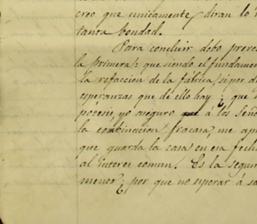 creo que unicamente diran lo
tanta bondad.
Para concluir debo preve
la primera; que siendo el fundamen
la refaccion de la fabrica, si por
esperanzas que de ello hay, que
yo aseguro á los Seño
la combinacion fracasa, me
que guarda la casa en su fecha
al interes comun. Es la segun
menor, por que no esperar á